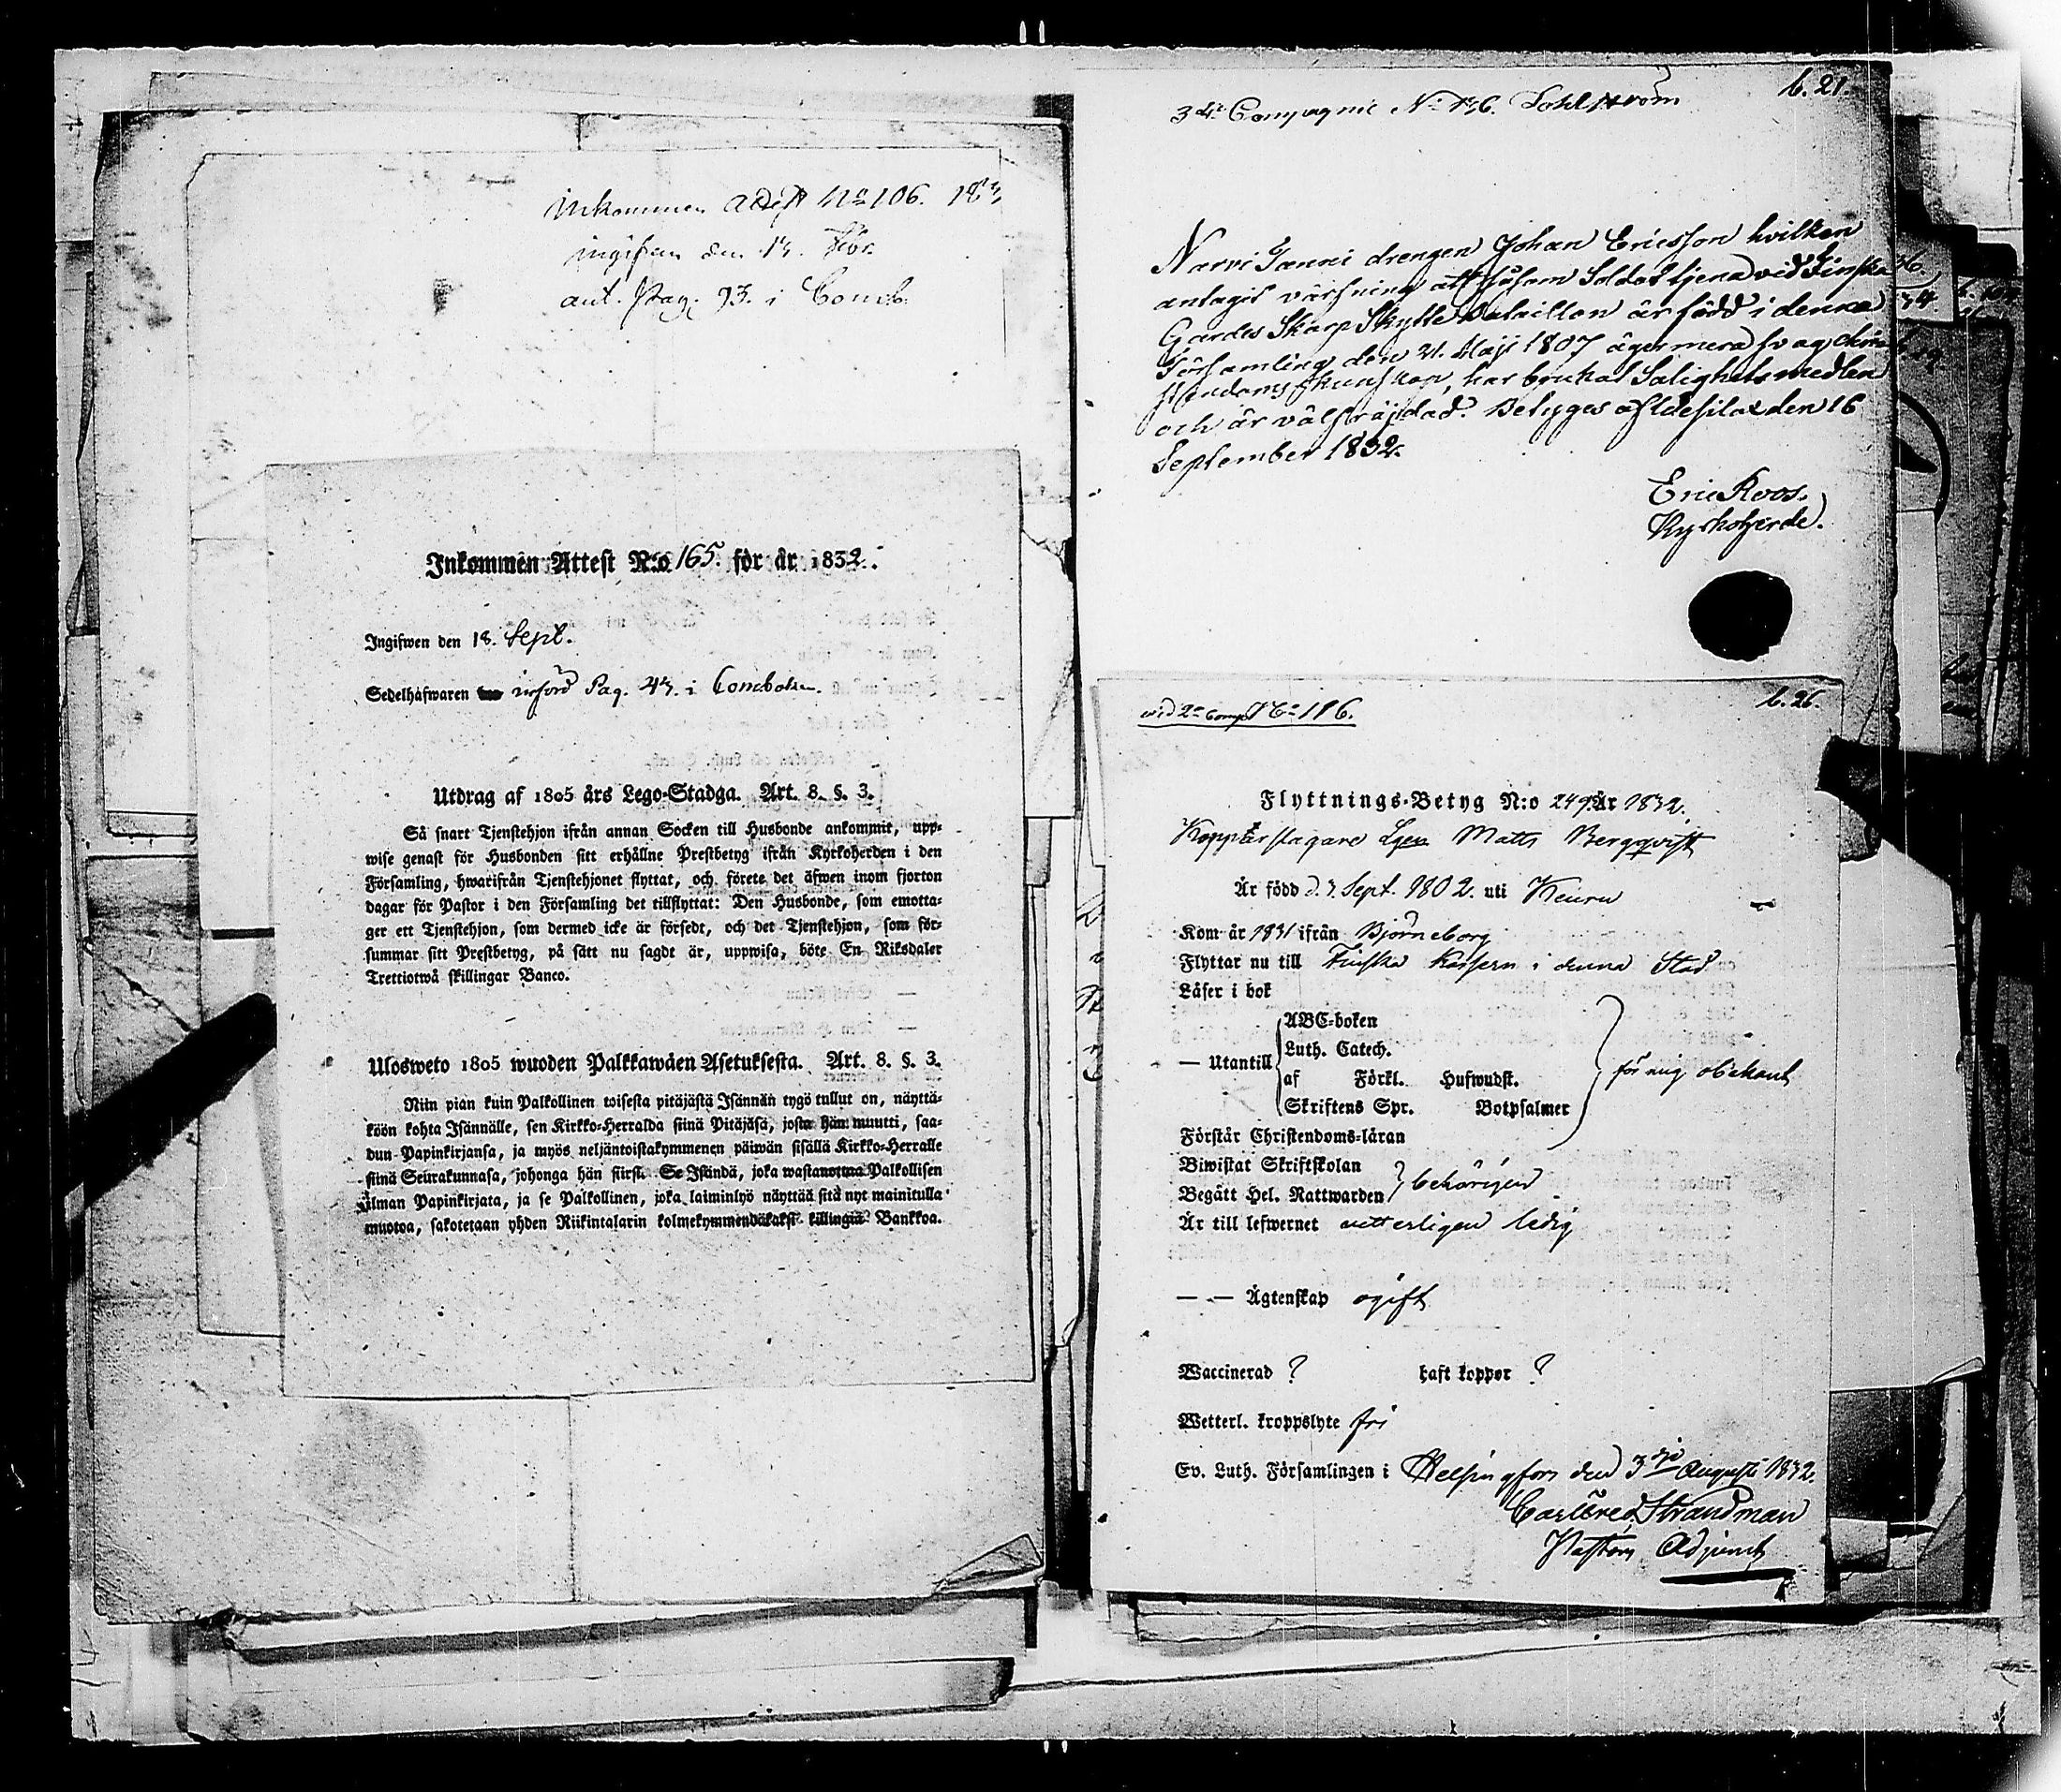 Inkommen Attest No 106.
ingifven den
ant. Pag. 93. i Comb.
Inkommen Attest N:o 165. för år 1832.
Ingifwen den 18. Sept.
Sedelhafwaren införd Pag. 43. i Comboken.
Utdrag af 1805 års Lego-Stadga. Art. 8. §. 3.
Så snart Tjenstehjon ifrån annan Socken till Husbonde ankommit, upp-
wise genast för Husbonden sitt erhållne Prestbetyg ifrån Kyrkoherden i den
Församling, hwarifrån Tjenstehjonet flyttat, och förete det äfwen inom fjorton
dagar för Pastor i den Församling det tillflyttat: Den Husbonde, som emotta-
ger ett Tjenstehjon, som dermed icke är försedt, och det Tjenstehjon, som för-
summar sitt Prestbetyg, på sätt nu sagdt är, uppwisa, böte En Riksdaler
Trettiotwå skillingar Banco.
Ulosweto 1805 wuoden Palkkawäen Asetuksesta. Art. 8. §. 3.
Niin pian kuin Palkollinen toisesta pitäjästä Isännän tygö tullut on, näyttä-
köön kohta Isännälle, sen Kirkko-Herralda siinä Pitäjäsä, josta hän muutti, saa-
dun Papinkirjansa, ja myös neljäntoistakymmenen päiwän sisällä Kirkko-Herralle
siinä Seurakunnasa, johonga hän siirsi. Se Isändä, joka wastanottaa Palkollisen
ilman Papinkirjata, ja se Palkollinen, joka laiminlyö näyttää sitä nyt mainitulla
muotoa, sakotetaan yhden Riikintalarin kolmekymmendäkaksi killingiä Bankkoa.
b. 21.
3dje Compagnie No 136. Sohlström
Narvi Janni drengen Johan Ericsson hvilken
antagit värfning att såsom Soldat tjena vid Finska
Gardes Skarp Skytte Bataillon är född i denna
Församling den 21. Maji 1807 äger mera svag chri-
stendoms kunskap, har brukat Salighets medlen
och är välfräjdad. Betyges af Idesilax den 16
September 1832.
Eric Roos.
Kyrkoherde.
b. 26.
vid 2a Comp No 186.
Flyttnings-Betyg N:o 249 År 1832.
Kopparslagare Matts Bergqvist
Är född d. 3 Sept. 1802. uti Keuru
Kom år 1831 ifrån Björneborg
Flyttar nu till Finska Kasern i denna Stad
Läser i bok
ABC-boken
Luth. Catech.
— Utantill af Förkl. Hufwudst. för mig obekant
Skriftens Spr. Botpsalmer
Förstår Christendoms-läran
Biwistat Skriftskolan
Begått Hel. Nattwarden behörigen
Är till lefwernet vetterligen ledig
— — Ägtenskap ogift
Waccinerad ? haft koppor ?
Wetterl. kroppslyte fri
Ev. Luth. Församlingen i Helsingfors den 3dje Augusti 1832.
Carl Fred. Strandman
Pastors Adjunct